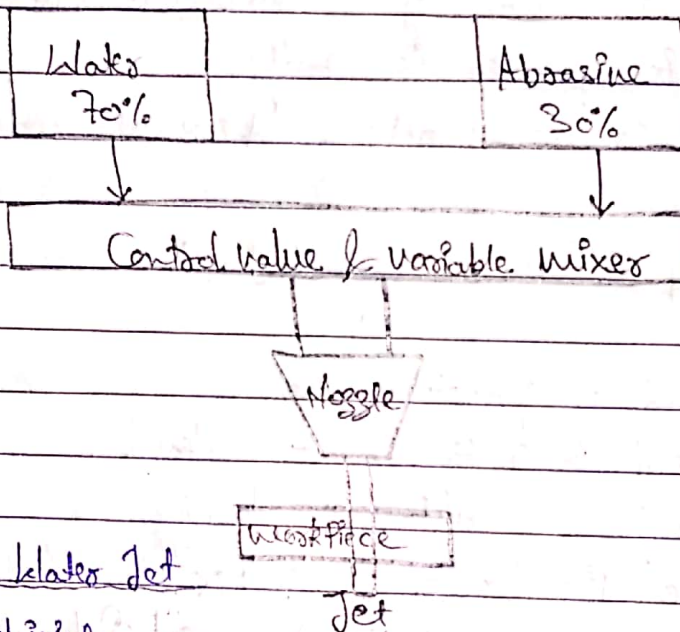 Water
70%
Abrasive
30%
Control value & variable mixer
Nozzle
Workpiece
Water Jet
Jet